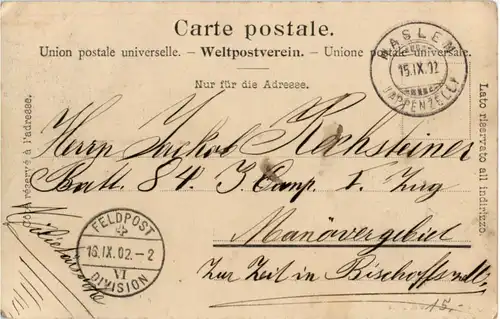 Carte postale.
Union postale universelle. – Weltpostverein. – Unione postale universale.
Nur für die Adresse.
Côté réservé à l'adresse.
Lato riservato all indirizzo.
HASLEN
15.IX.02
(APPENZELL)
Herrn Jackob Rechsteiner
Batt. 84. 3. Comp. I. Zug
Manövergebiet
Zur Zeit in Bischoffszell
Militärsache
FELDPOST
16.IX.02.–2
VI
DIVISION
15.–